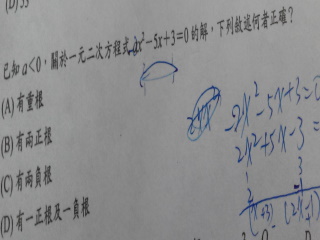 (D) 35
已知 a<0,關於一元二次方程式 ax²-5x+3=0 的解,下列敘述何者正確?
(A) 有重根
(B) 有兩正根
(C) 有兩負根
(D) 有一正根及一負根
-2x²-5x+3=0
2x²+5x-3=
1 3
2
(x+3) (2x-1)